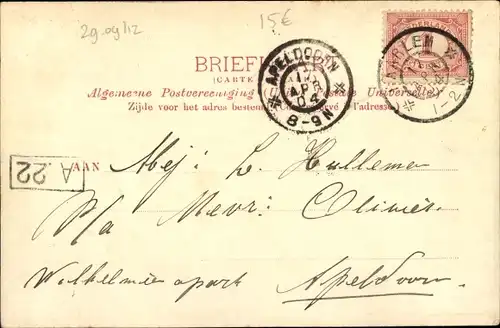 29.09/12
15€
NEDERLAND
1
BRIEFK
(CARTE
Algemeene Postvereeniging Postale Universelle
Zijde voor het adres bestemd. Côté réservé à l'adresse
APELDOORN
AP
04
8-9N
HAARLEM
1-2N
A. 22
AAN Mej: L. Hulleman
P/a Mevr: Olivier
Wilhelmina park Apeldoorn.